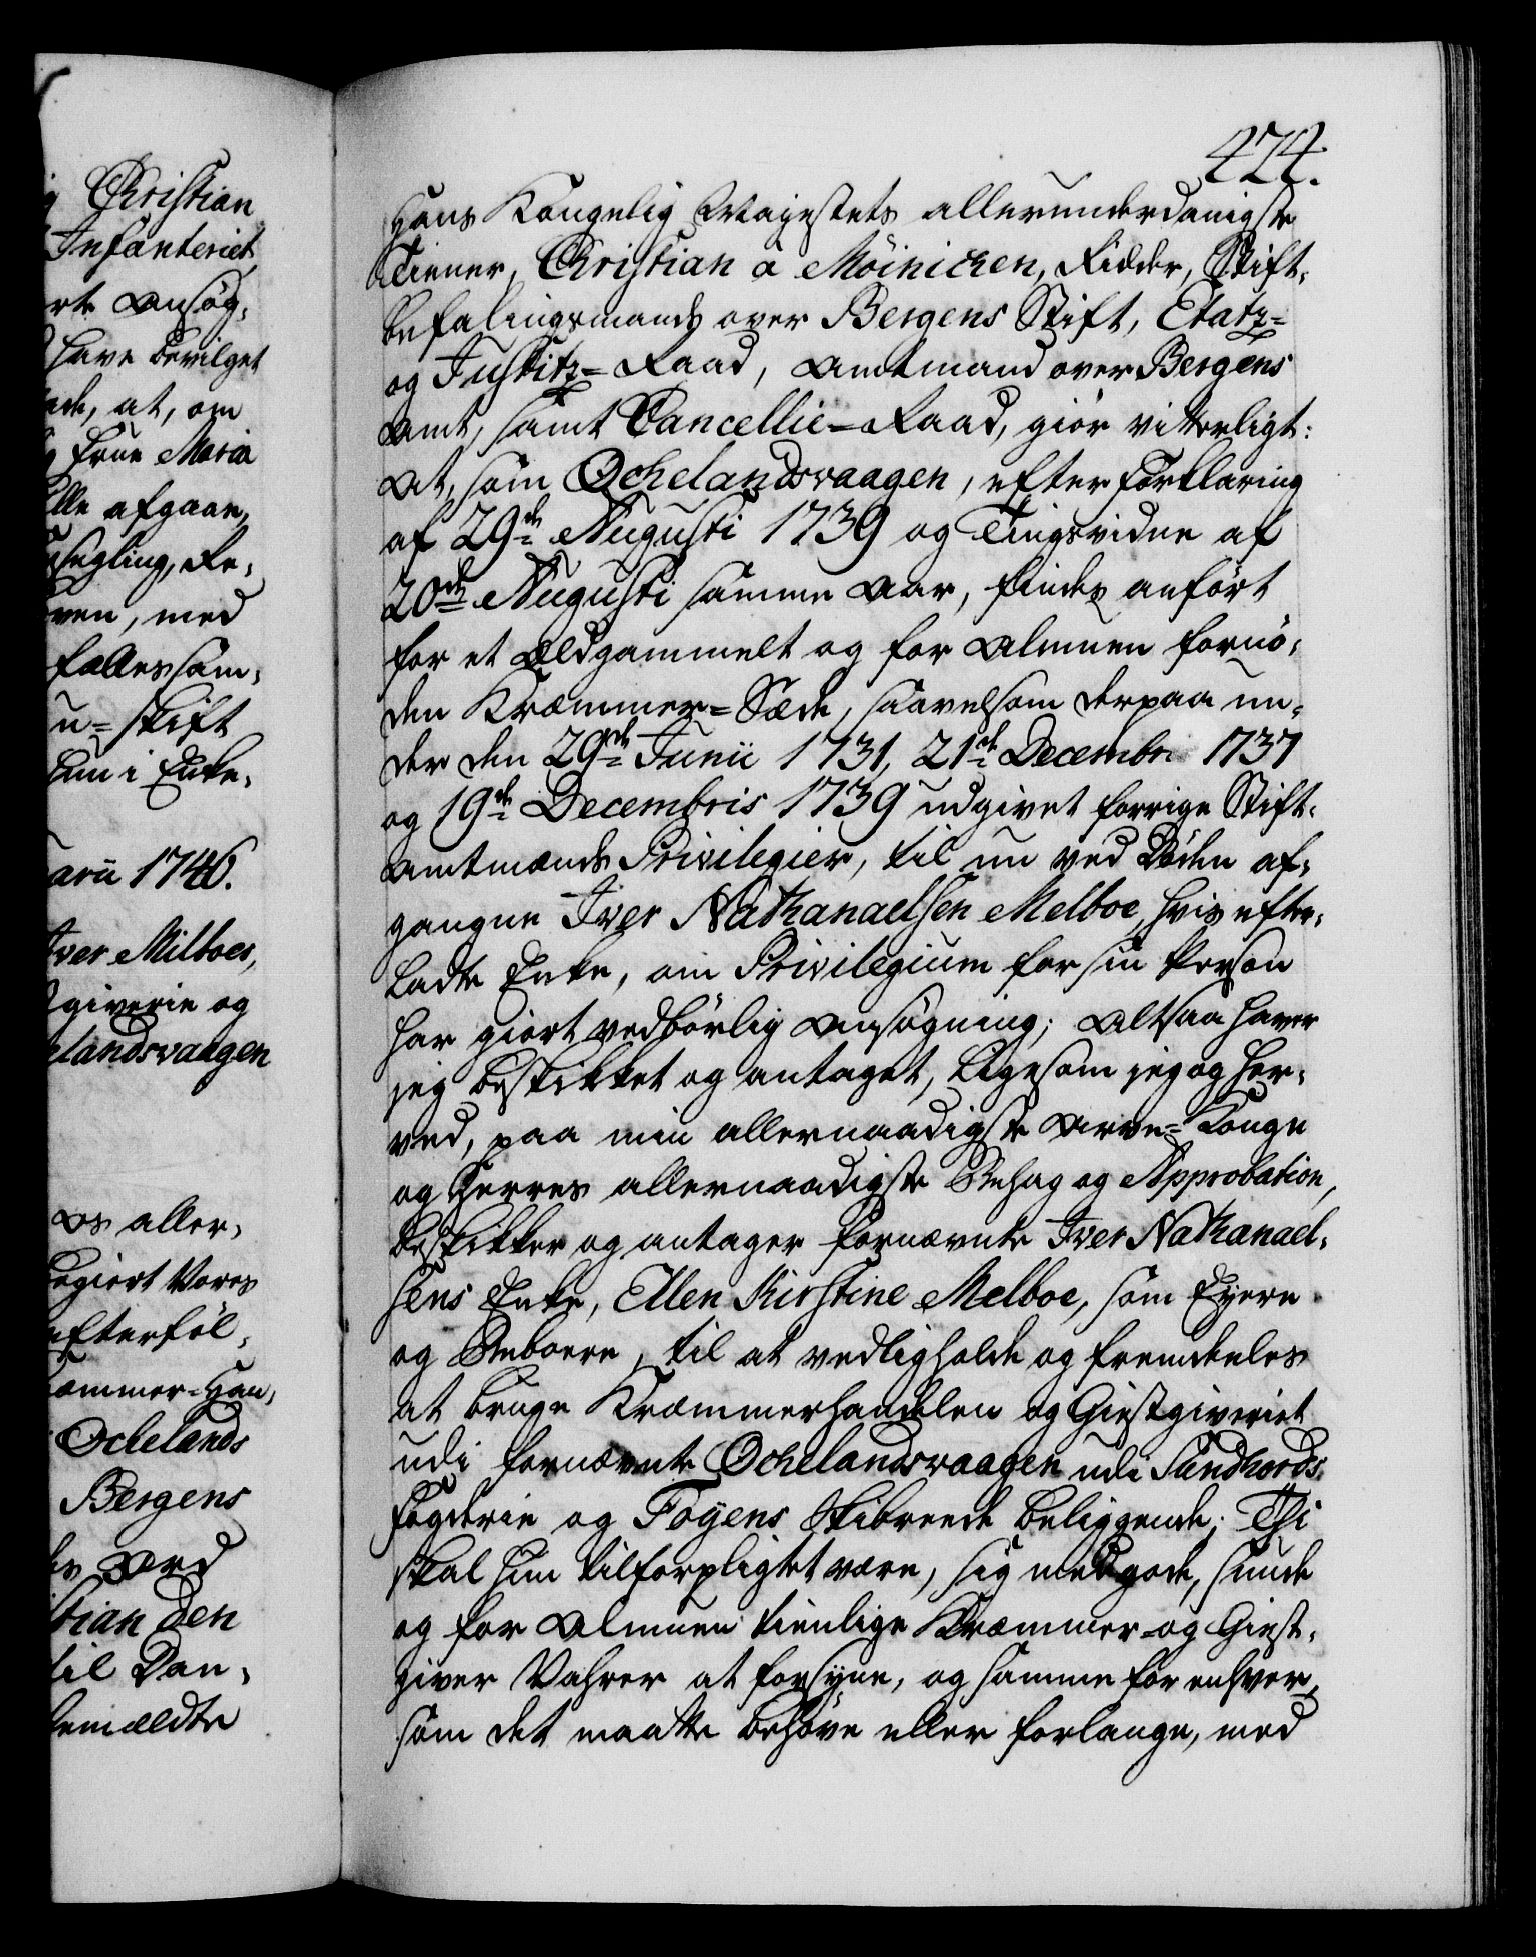 g Christian
Infanteriet
rte Ansøg,
have bevilget
ede, at, om
g Frue Maria
ille afgaae,
segling, Re,
oven, med
fælles sam,
u=skift
hun i Enke,
arii 1746.
Iver Milboes,
tgiverie og
elandsvaagen
os aller,
begiert Vores
efterføl,
ræmmer=Han,
Ochelands
Bergens
Ord
stian den
til Dan,
bemældte
474.
Hans Kongelig Majestets allerunderdanigste
Tiener, Christian a Möinichen, Ridder, Stift,
befalingsmand over Bergens Stift, Etatz=
og Justitz=Raad, Amtmand over Bergens
Amt, samt Cancellie=Raad, giør vitterligt:
At, som Ochelandsvaagen, efter Forklaring
af 29de Augusti 1739 og Tingsvidne af
20de Augusti samme Aar, findes anført
for et Ældgammelt og for Almuen fornø,
den Kræmmer=Sæde, saavelsom derpaa un,
der den 29de Junii 1731, 21de Decembri 1737
og 19de Decembris 1739 udgivet forrige Stift,
amtmænds Privilegier, til nu ved Døden af,
gangne Iver Nathanaelsen Melboe, hvis efter,
ladte Enke, om Privilegium for sin Person
har giort vedbørlig Ansøgning; Altsaa haver
jeg beskikket og antaget, ligesom jeg og her,
ved, paa min allernaadigste Arve=Konge
og Herres allernaadigste Behag og Approbation,
beskikker og antager fornævnte Iver Nathanael,
sens Enke, Ellen Kirstine Melboe, som Eyere
og Beboere, til at vedligholde og fremdeeles
at bruge Kræmmerhandelen og Giestgiveriet
udi fornævnte Ochelandsvaagen udi Sundhords
Fogderie og Føÿens Skibreede beliggende; Thi
skal hun tilforpligtet være, sig med gode, sunde
og for Almuen tienlige Kræmmer=og Giest,
giver Vahrer at forsyne, og samme for enhver,
som det maatte behøve eller forlange, med